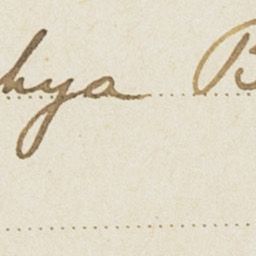 hya B